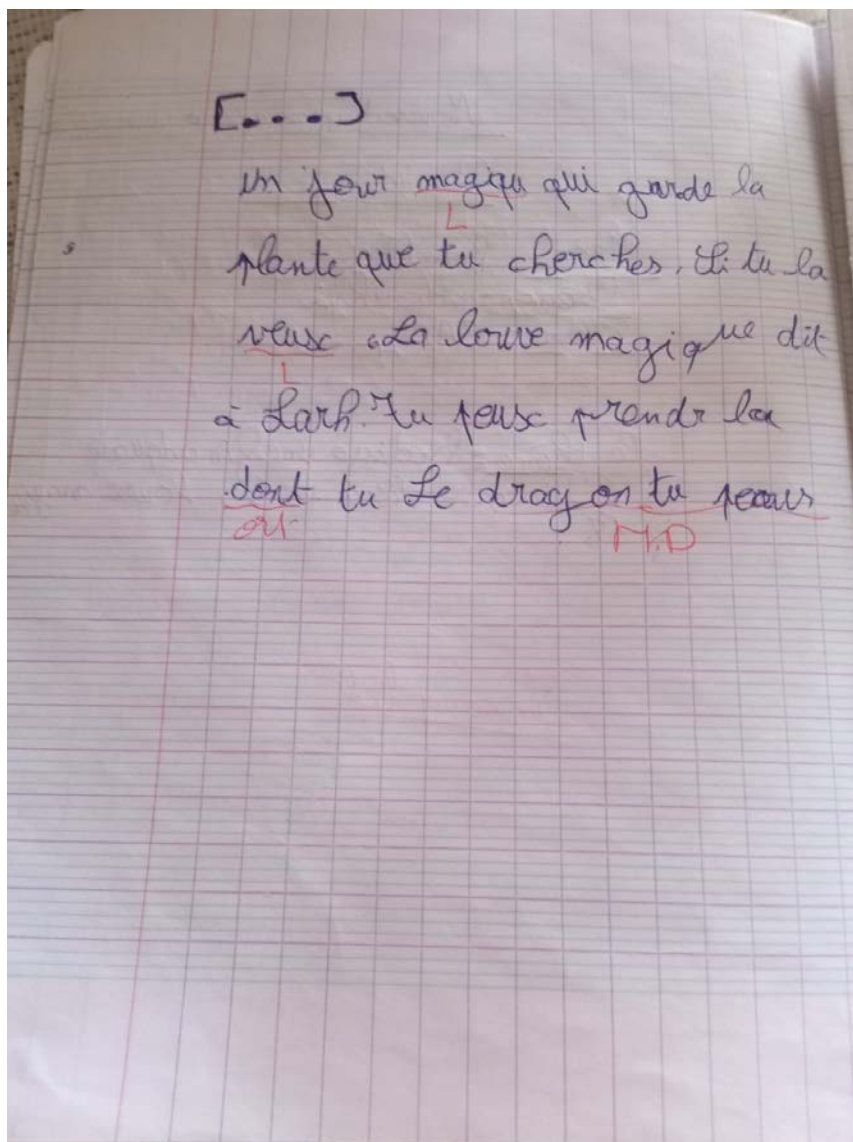 [...]
un jour magiqu qui garde la
L
plante que tu cherches. Si tu la
veux. La louve magique dit
L
à Larh. Tu peux prendr la
dont tu Le dragon tu
ort M.D